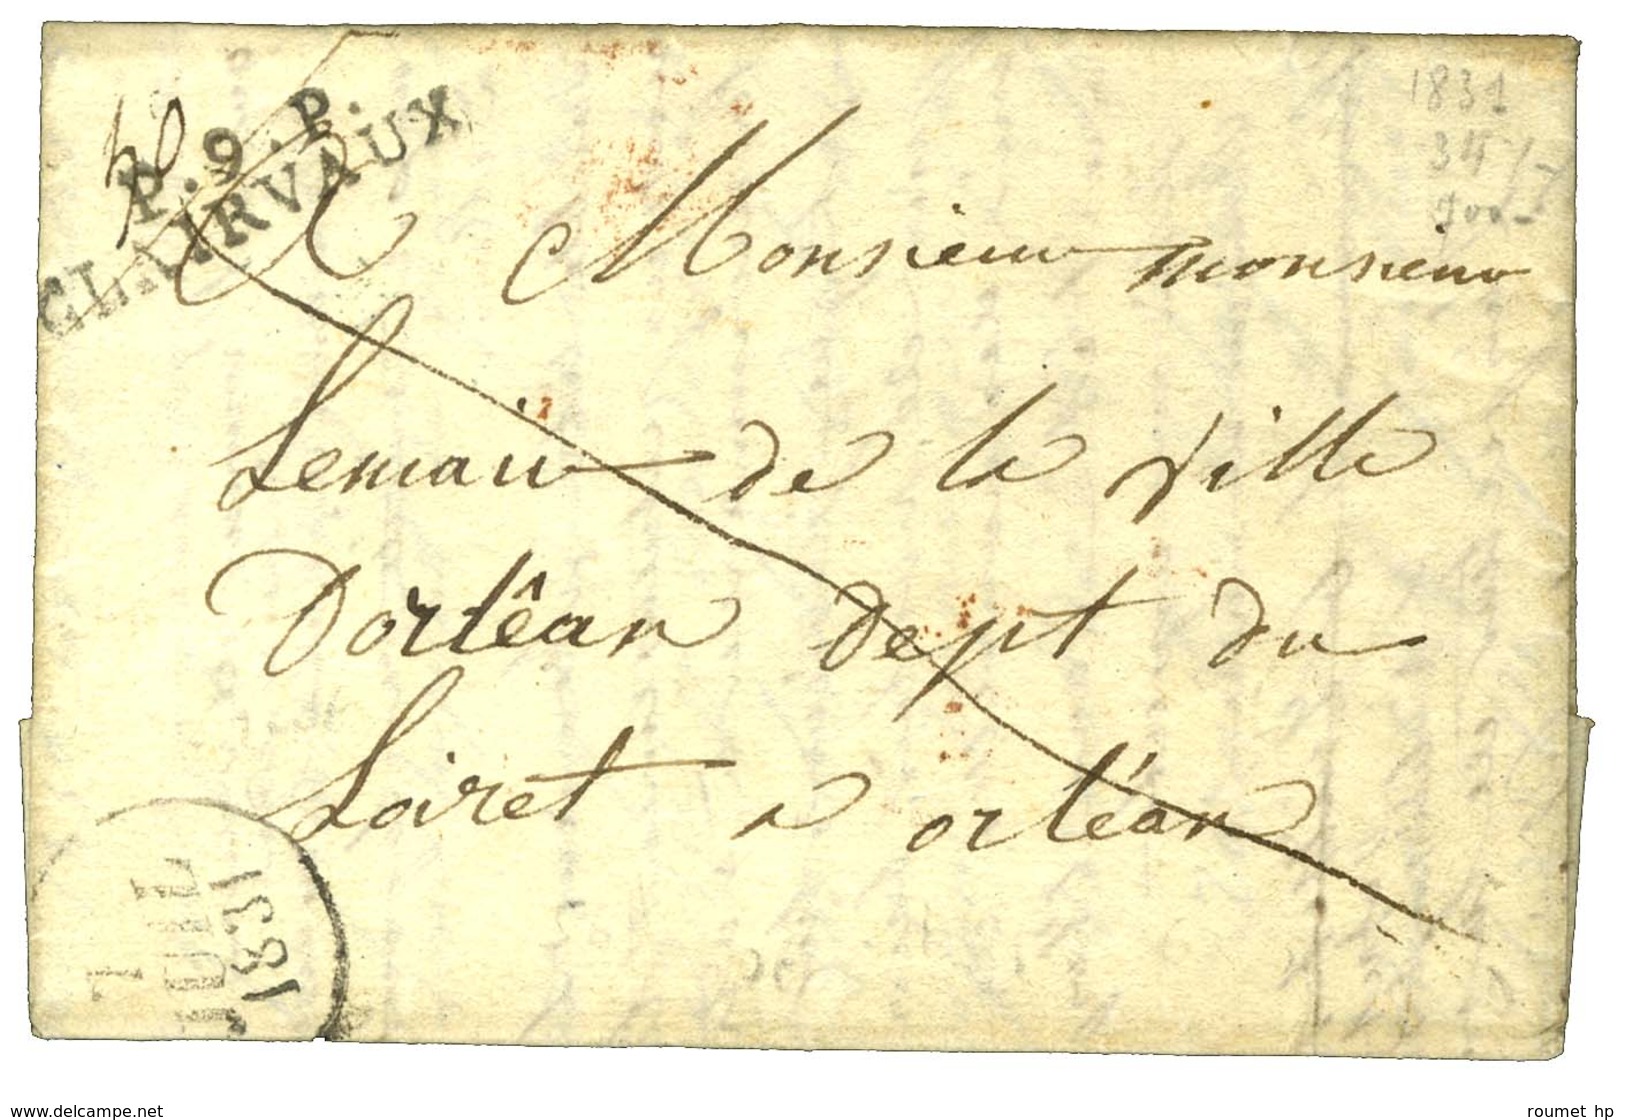 P. 9. P.
CLAIRVAUX
1831
345/-
700-
Monsieur monsieur
Lemair de la ville
Dorlêan dept du
Loiret a orléan
7
JUIL
1831
www.delcampe.net
roumet hp